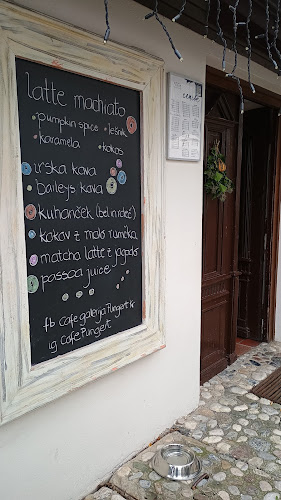 latte machiato
• pumpkin spice • lešnik
• karamela • kokos
irska kava
baileys kava
kuhanček (bel in rdeč)
kakav z malo rumčka
matcha latte z jagodo
passoa juice
fb cafe galerija Pungert kr
ig cafe Pungert
CENIK